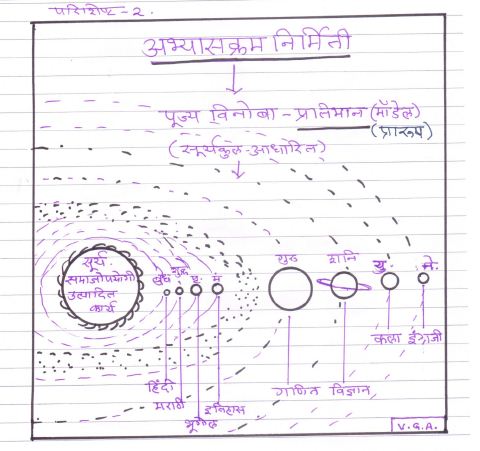 परिशिष्ट-२.
अभ्यासक्रम निर्मिती
पूज्य विनोबा - प्रतिमान (मॉडेल)
(प्रारूप)
(सूर्यकुल-आधारित)
सूर्य
समाजोपयोगी
उत्पादित
कार्य
बुध शुक्र पृ. मं
गुरु शनि यु. ने.
कला इंग्रजी
हिंदी गणित विज्ञान
मराठी इतिहास
भूगोल
V.G.A.